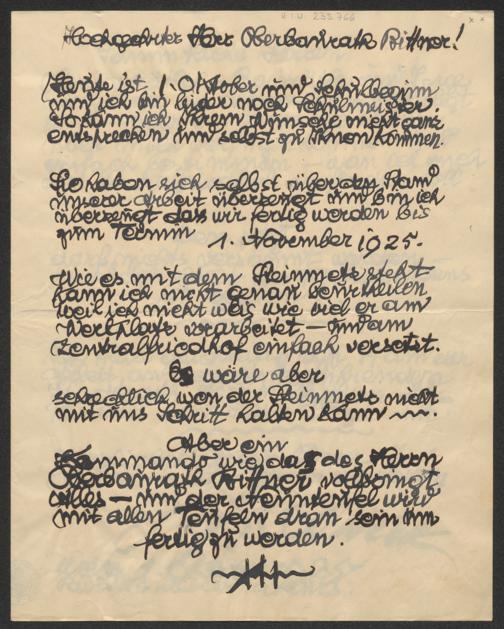 H.I.N. 233766
Hochgeehrter Herr Oberbaurath Bittner!
Heute ist 1. Oktober und Schulbeginn
und ich bin leider noch Schulmeister.
So kann ich Ihrem Wunsche nicht ganz
entsprechen und selbst zu Ihnen kommen.
Sie haben sich selbst über den Stand
unserer Arbeit überzeugt und bin ich
überzeugt dass wir fertig werden bis
zum Termin
1. November 1925.
Wie es mit dem Steinmetz steht
kann ich nicht genau beurtheilen
weil ich nicht weis wie viel er am
Werkplatz vorarbeitet – und am
Zentralfriedhof einfach versetzt.
Es wäre aber
schrecklich wen der Steinmetz nicht
mit uns Schritt halten kann
Aber ein
Kommando wie das des Herrn
Oberbaurath Bittner vollbringt
Alles – und der wird
mit allen Teufeln dran sein um
fertig zu werden.